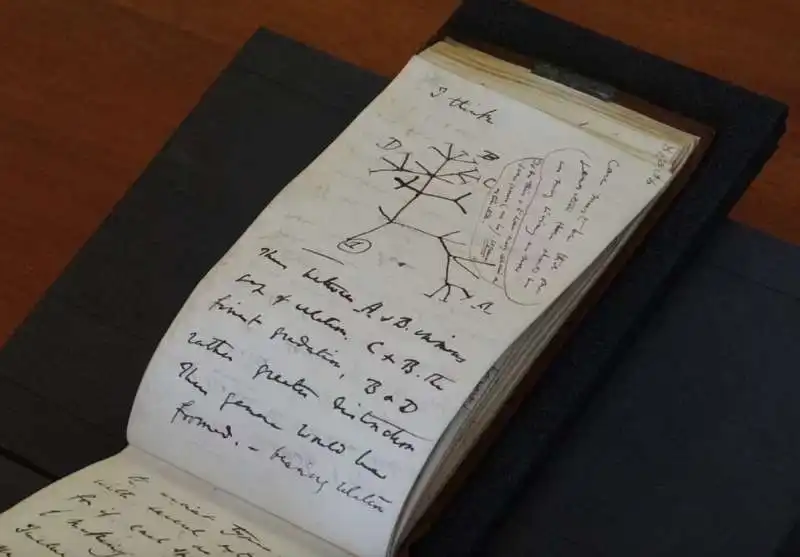 I think
D
B
C
A
1
Case must be that one
generation then should be
as many living as now
To do this & to have many species in
same genus (as is)
requires extinction
Thus between A & B. immense
gap of relation. C & B. The
finest gradation, B & D
rather greater distinction
Thus genera would be
formed. — bearing relation
to ancient types
with several
for if each
of making